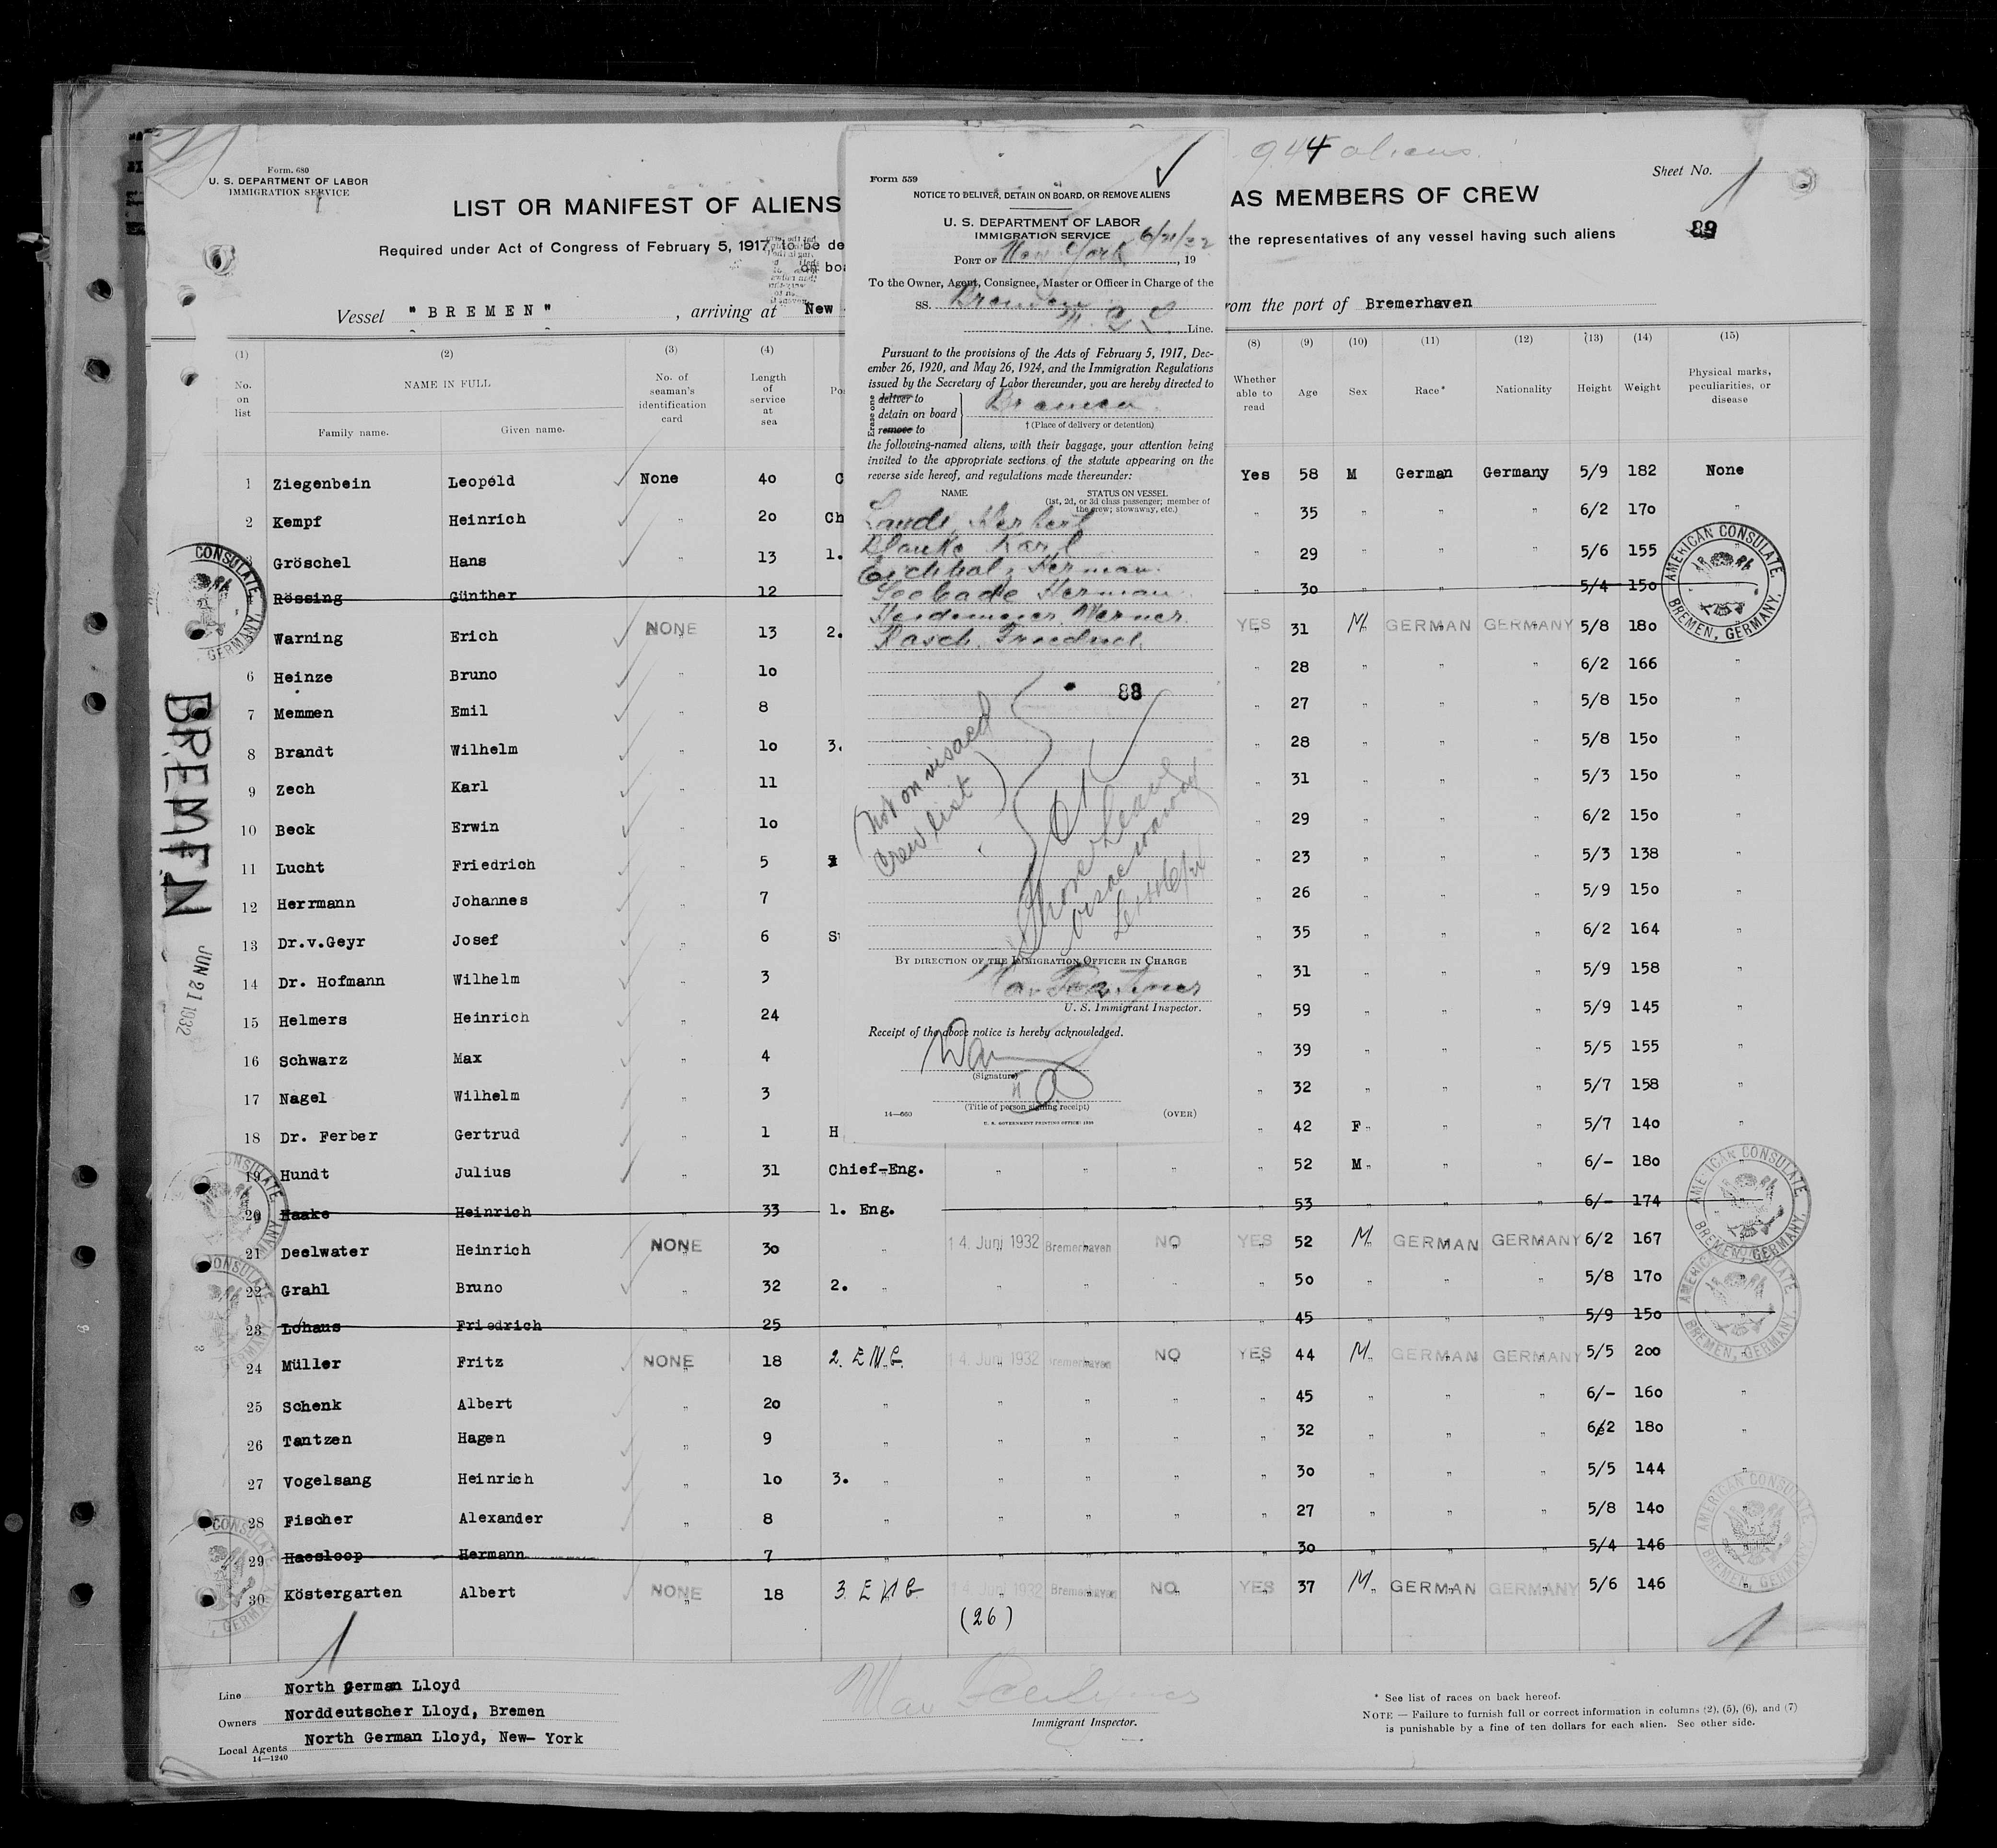 944 aliens
Form. 680
U. S. DEPARTMENT OF LABOR
IMMIGRATION SERVICE
Sheet No. 1
89
LIST OR MANIFEST OF ALIENS AS MEMBERS OF CREW
Required under Act of Congress of February 5, 1917, to be de the representatives of any vessel having such aliens
on boa
Vessel "BREMEN", arriving at New om the port of Bremerhaven
(1) (2) (3) (4) (8) (9) (10) (11) (12) (13) (14) (15)
No. on list
NAME IN FULL
Family name. Given name.
No. of seaman's identification card
Length of service at sea
Po
Whether able to read
Age
Sex
Race*
Nationality
Height
Weight
Physical marks, peculiarities, or disease
1 Ziegenbein Leopold None 40 C Yes 58 M German Germany 5/9 182 None
2 Kempf Heinrich " 20 Ch " 35 " " " 6/2 170 "
3 Gröschel Hans " 13 1. " 29 " " " 5/6 155
Rössing Günther 12 30 " " " 5/4 150
Warning Erich NONE 13 2. YES 31 M. GERMAN GERMANY 5/8 180
6 Heinze Bruno " 10 " 28 " " " 6/2 166 "
7 Memmen Emil " 8 " 27 " " " 5/8 150 "
8 Brandt Wilhelm " 10 3. " 28 " " " 5/8 150 "
9 Zech Karl " 11 " 31 " " " 5/3 150 "
10 Beck Erwin " 10 " 29 " " " 6/2 150 "
11 Lucht Friedrich " 5 " 23 " " " 5/3 138 "
12 Herrmann Johannes " 7 " 26 " " " 5/9 150 "
13 Dr.v.Geyr Josef " 6 S " 35 " " " 6/2 164 "
14 Dr. Hofmann Wilhelm " 3 " 31 " " " 5/9 158 "
15 Helmers Heinrich " 24 " 59 " " " 5/9 145 "
16 Schwarz Max " 4 " 39 " " " 5/5 155 "
17 Nagel Wilhelm " 3 " 32 " " " 5/7 158 "
18 Dr. Ferber Gertrud " 1 H " 42 F " " 5/7 140 "
19 Hundt Julius " 31 Chief-Eng. " " " " 52 M " " 6/- 180
20 Haake Heinrich " 33 1. Eng. " " 53 " " " 6/- 174
21 Deelwater Heinrich NONE 30 " 14. Juni 1932 Bremerhaven NO YES 52 M. GERMAN GERMANY 6/2 167
22 Grahl Bruno " 32 2. " " " " " 50 " " " 5/8 170 "
23 Lohaus Friedrich " 25 " " " " 45 " " " 5/9 150 "
24 Müller Fritz NONE 18 2. ENG. 14. Juni 1932 Bremerhaven NO YES 44 M. GERMAN GERMANY 5/5 200 "
25 Schenk Albert " 20 " " " " " 45 " " " 6/- 160 "
26 Tantzen Hagen " 9 " " " " " 32 " " " 6/2 180 "
27 Vogelsang Heinrich " 10 3. " " " " " 30 " " " 5/5 144 "
28 Fischer Alexander " 8 " " " " " 27 " " " 5/8 140 "
29 Haesloop Hermann " 7 " " " " 30 " " " 5/4 146 "
30 Köstergarten Albert NONE 18 3. ENG. 14. Juni 1932 Bremerhaven NO YES 37 M. GERMAN GERMANY 5/6 146 "
(26)
1 1
Line North German Lloyd
Owners Norddeutscher Lloyd, Bremen
Local Agents North German Lloyd, New-York
14—1240
Immigrant Inspector.
* See list of races on back hereof.
NOTE — Failure to furnish full or correct information in columns (2), (5), (6), and (7)
is punishable by a fine of ten dollars for each alien. See other side.
BREMEN
JUN 21 1932
AMERICAN CONSULATE
BREMEN, GERMANY.
AMERICAN CONSULATE
BREMEN, GERMANY.
AMERICAN CONSULATE
BREMEN, GERMANY.
AMERICAN CONSULATE
BREMEN, GERMANY.
CONSULATE
GERMANY
CONSULATE
ANY
CONSULATE
GERMANY
CONSULATE
GERMANY
Form 559
NOTICE TO DELIVER, DETAIN ON BOARD, OR REMOVE ALIENS
U. S. DEPARTMENT OF LABOR
IMMIGRATION SERVICE
PORT OF New York 6/21/32, 19
To the Owner, Agent, Consignee, Master or Officer in Charge of the
SS. Bremen
N. G. L. Line.
Pursuant to the provisions of the Acts of February 5, 1917, Dec-
ember 26, 1920, and May 26, 1924, and the Immigration Regulations
issued by the Secretary of Labor thereunder, you are hereby directed to
Erase one
deliver to
detain on board
remove to
Bremen
† (Place of delivery or detention)
the following-named aliens, with their baggage, your attention being
invited to the appropriate sections of the statute appearing on the
reverse side hereof, and regulations made thereunder:
NAME STATUS ON VESSEL
(1st, 2d, or 3d class passenger; member of
the crew; stowaway, etc.)
Herbert
Karl
Eichholz Herman
Seebade Herman
Heidemeier Werner
Rasch Friedrich
88
(not on visaed
crew list)
OK
Shore Leave
visae waived
BY DIRECTION OF THE IMMIGRATION OFFICER IN CHARGE
U. S. Immigrant Inspector.
Receipt of the above notice is hereby acknowledged.
(Signature)
(Title of person signing receipt)
14—660
(OVER)
U. S. GOVERNMENT PRINTING OFFICE: 1930